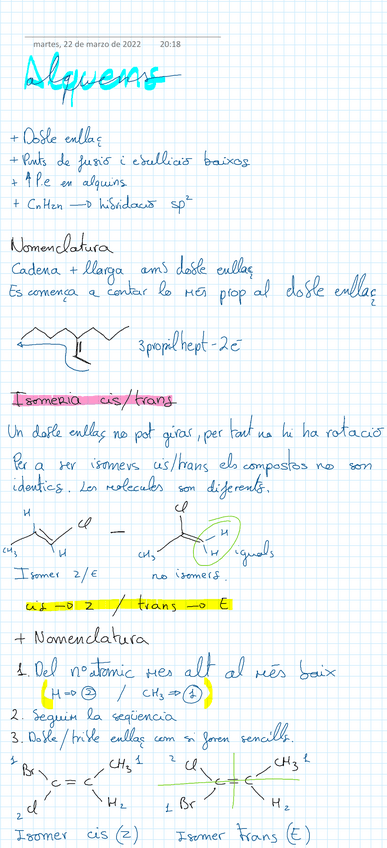 martes, 22 de marzo de 2022 20:18
Alquens
+ Doble enllaç
+ Punts de fusió i ebullició baixos
+ ↑ P.e en alquins
+ CnH2n → hibridació sp²
Nomenclatura
Cadena + llarga amb doble enllaç
Es comença a contar lo més prop al doble enllaç
3 propil hept-2é
Isomeria cis/trans
Un doble enllaç no pot girar, per tant no hi ha rotació
Per a ser isomers cis/trans els compostos no son
identics. Les molecules son diferents.
H Cl — Cl H
CH3 H CH3 H iguals
Isomer Z/E no isomers.
cis → Z / trans → E
+ Nomenclatura
1. Del nº atomic mes alt al més baix
(H ⇒ 2 / CH3 ⇒ 1)
2. Seguim la seqüencia
3. Doble/triple enllaç com si foren sencills.
1 Br CH3 1 2 Cl CH3 1
C = C C = C
2 Cl H 2 1 Br H 2
Isomer cis (Z) Isomer trans (E)